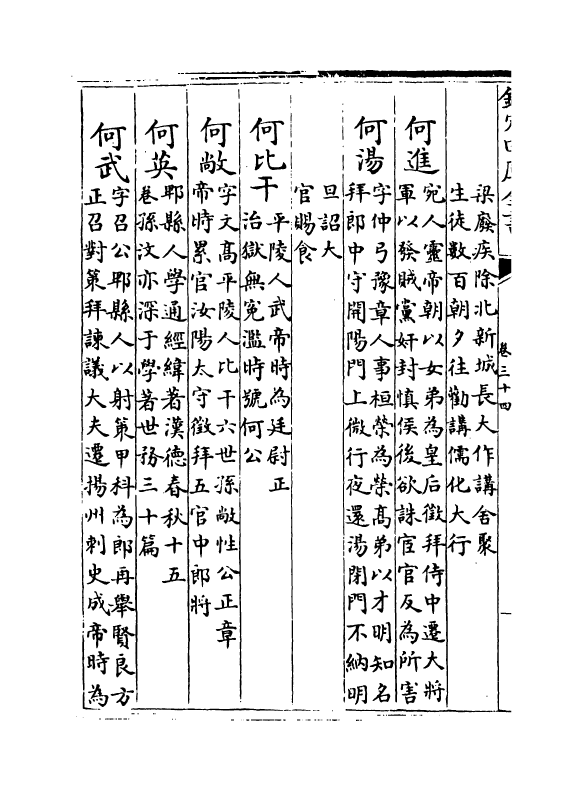 欽定四庫全書
卷三十四
梁廢疾除北新城長大作講舍聚
生徒數百朝夕往勸講儒化大行
何進
宛人靈帝朝以女弟為皇后徵拜侍中遷大將
軍以發賊黨奸封慎侯後欲誅宦官反為所害
何湯
字仲弓豫章人事桓榮為榮髙弟以才明知名
拜郎中守開陽門上微行夜還湯閉門不納明
旦詔大
官賜食
何比干
平陵人武帝時為廷尉正
治獄無冤濫時號何公
何敞
字文髙平陵人比干六世孫敞性公正章
帝時累官汝陽太守徵拜五官中郎將
何英
郫縣人學通經緯著漢德春秋十五
卷孫汶亦深于學著世務三十篇
何武
字召公郫縣人以射策甲科為郎再舉賢良方
正召對策拜諫議大夫遷揚州刺史成帝時為